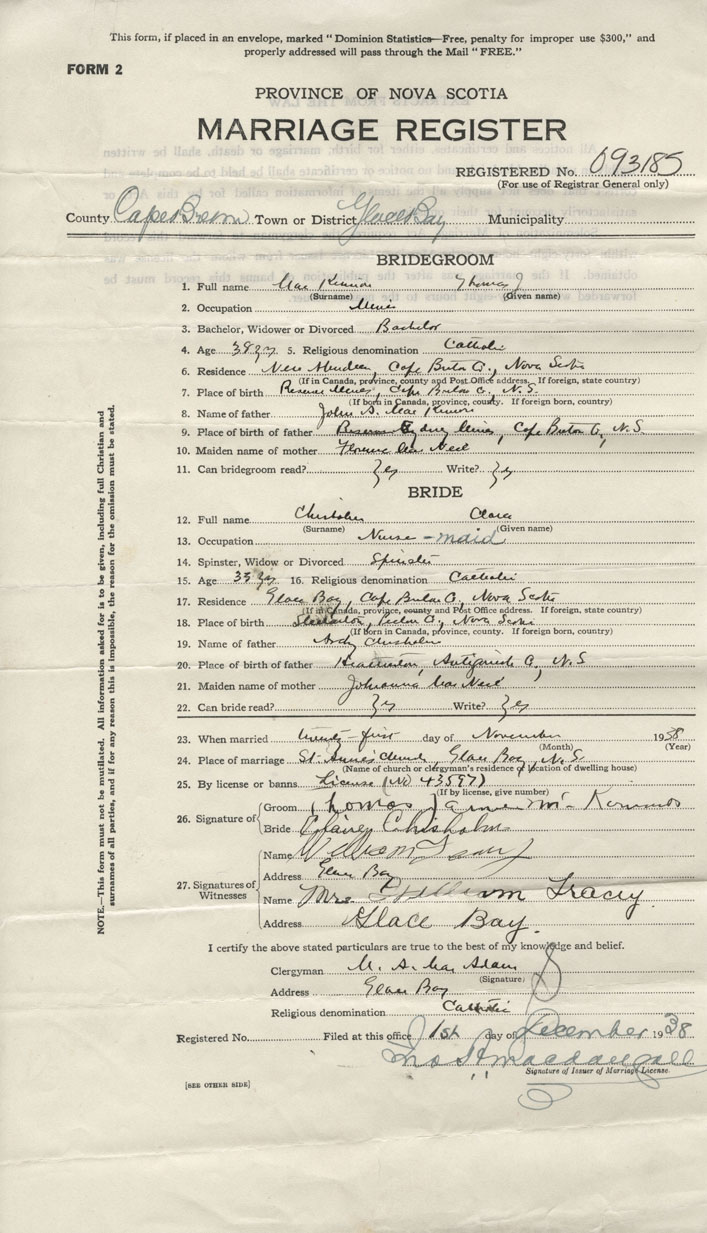 This form, if placed in an envelope, marked "Dominion Statistics—Free, penalty for improper use $300," and
properly addressed will pass through the Mail "FREE."
FORM 2
PROVINCE OF NOVA SCOTIA
MARRIAGE REGISTER
REGISTERED No. 093185
(For use of Registrar General only)
County Cape Breton Town or District Glace Bay Municipality
BRIDEGROOM
1. Full name Mac Kinnon Thomas J
(Surname) (Given name)
2. Occupation Miner
3. Bachelor, Widower or Divorced Bachelor
4. Age 38 yrs 5. Religious denomination Catholic
6. Residence New Aberdeen, Cape Breton Co., Nova Scotia
(If in Canada, province, county and Post Office address. If foreign, state country)
7. Place of birth Reserve Mines, Cape Breton Co., N.S.
(If born in Canada, province, county. If foreign born, country)
8. Name of father John A. Mac Kinnon
9. Place of birth of father Sydney Mines, Cape Breton Co, N.S
10. Maiden name of mother Florence Mac Neil
11. Can bridegroom read? Yes Write? Yes
BRIDE
12. Full name Chisholm Clara
(Surname) (Given name)
13. Occupation Nurse-maid
14. Spinster, Widow or Divorced Spinster
15. Age 35 yrs 16. Religious denomination Catholic
17. Residence Glace Bay, Cape Breton Co, Nova Scotia
(If in Canada, province, county and Post Office address. If foreign, state country)
18. Place of birth Stellarton, Pictou Co, Nova Scotia
(If Born in Canada, province, county. If foreign born, country)
19. Name of father Andy Chisholm
20. Place of birth of father Heatherton, Antigonish Co, N.S
21. Maiden name of mother Johanna Mac Neil
22. Can bride read? Yes Write? Yes
23. When married twenty-first day of November 1938
(Month) (Year)
24. Place of marriage St. Anne's Church, Glace Bay, N.S
(Name of church or clergyman's residence or location of dwelling house)
25. By license or banns License (No 43597)
(If by license, give number)
26. Signature of Groom Thomas James Mc Kinnon
Bride Chisholm
27. Signatures of Witnesses
Name
Address Glace Bay
Name Mrs William Tracey.
Address Glace Bay.
I certify the above stated particulars are true to the best of my knowledge and belief.
Clergyman M. A. Mac Adam
(Signature)
Address Glace Bay
Religious denomination Catholic
Registered No. Filed at this office 1st day of December 1938
Macdougall
Signature of Issuer of Marriage License
[SEE OTHER SIDE]
NOTE.—This form must not be mutilated. All information asked for is to be given, including full Christian and
surnames of all parties, and if for any reason this is impossible, the reason for the omission must be stated.